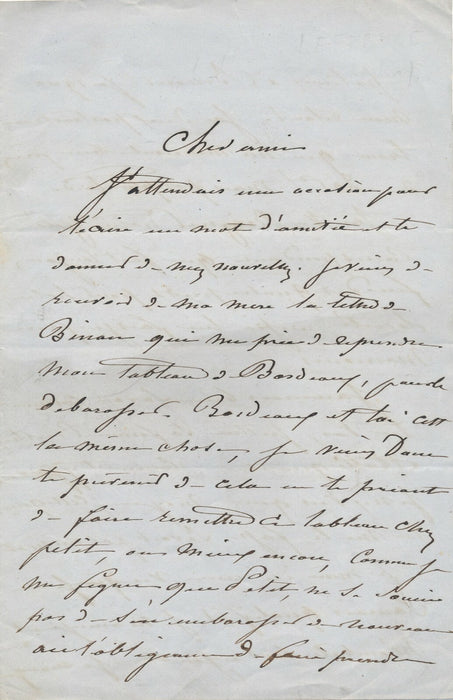 Cher ami
J'attendais une occasion pour
t'écrire un mot d'amitié et te
donner de mes nouvelles. Je viens de
recevoir de ma mere la lettre de
qui me prie de reprendre
mon tableau de Bordeaux, pour le
debarasser. Bordeaux et toi c'est
la même chose, je viens donc
te prévenir de cela en te priant
de faire remettre ce tableau chez
petit, ou mieux encore, comme je
me figure que Petit, ne se soucie
pas de s'en embarasser de nouveau
aie l'obligeance de faire prendre